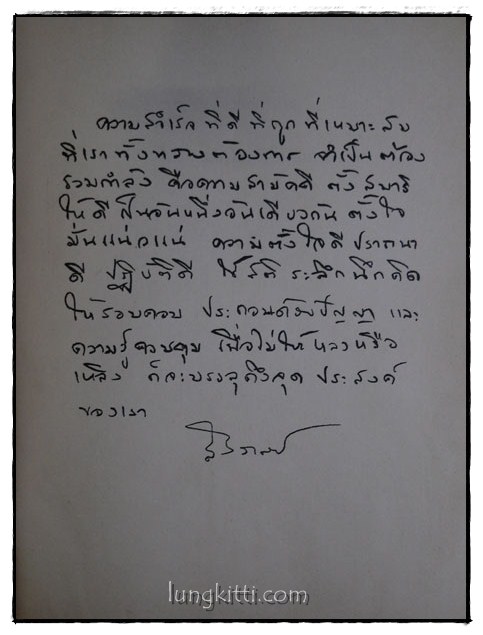 ความสำเร็จ ที่ดี ที่ถูก ที่เหมาะสม
ที่เราทั้งหลายต้องการ จำเป็นต้อง
รวมกำลัง คือความสามัคคี ตั้งสมาธิ
ให้ดี เป็นอันหนึ่งอันเดียวกัน ตั้งใจ
มั่นแน่วแน่ ความตั้งใจดี ปรารถนา
ดี ปฏิบัติดี ใช้สติ ระลึกนึกคิด
ให้รอบคอบ ประกอบด้วยปัญญา และ
ความรู้ควบคุม เพื่อไม่ให้หลงหรือ
เหลิง ก็จะบรรลุถึงจุดประสงค์
ของเรา
lungkitti.com